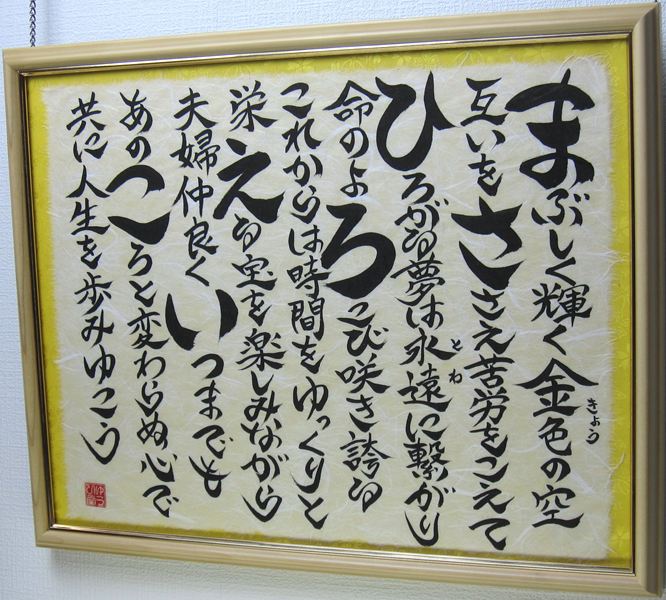 まぶしく輝く金色の空
きょう
互いをささえ苦労をこえて
ひろがる夢は永遠に繋がり
とわ
命のよろこび咲き誇る
これからは時間をゆっくりと
栄える宝を楽しみながら
夫婦仲良くいつまでも
あのころと変わらぬ心で
共に人生を歩みゆこう